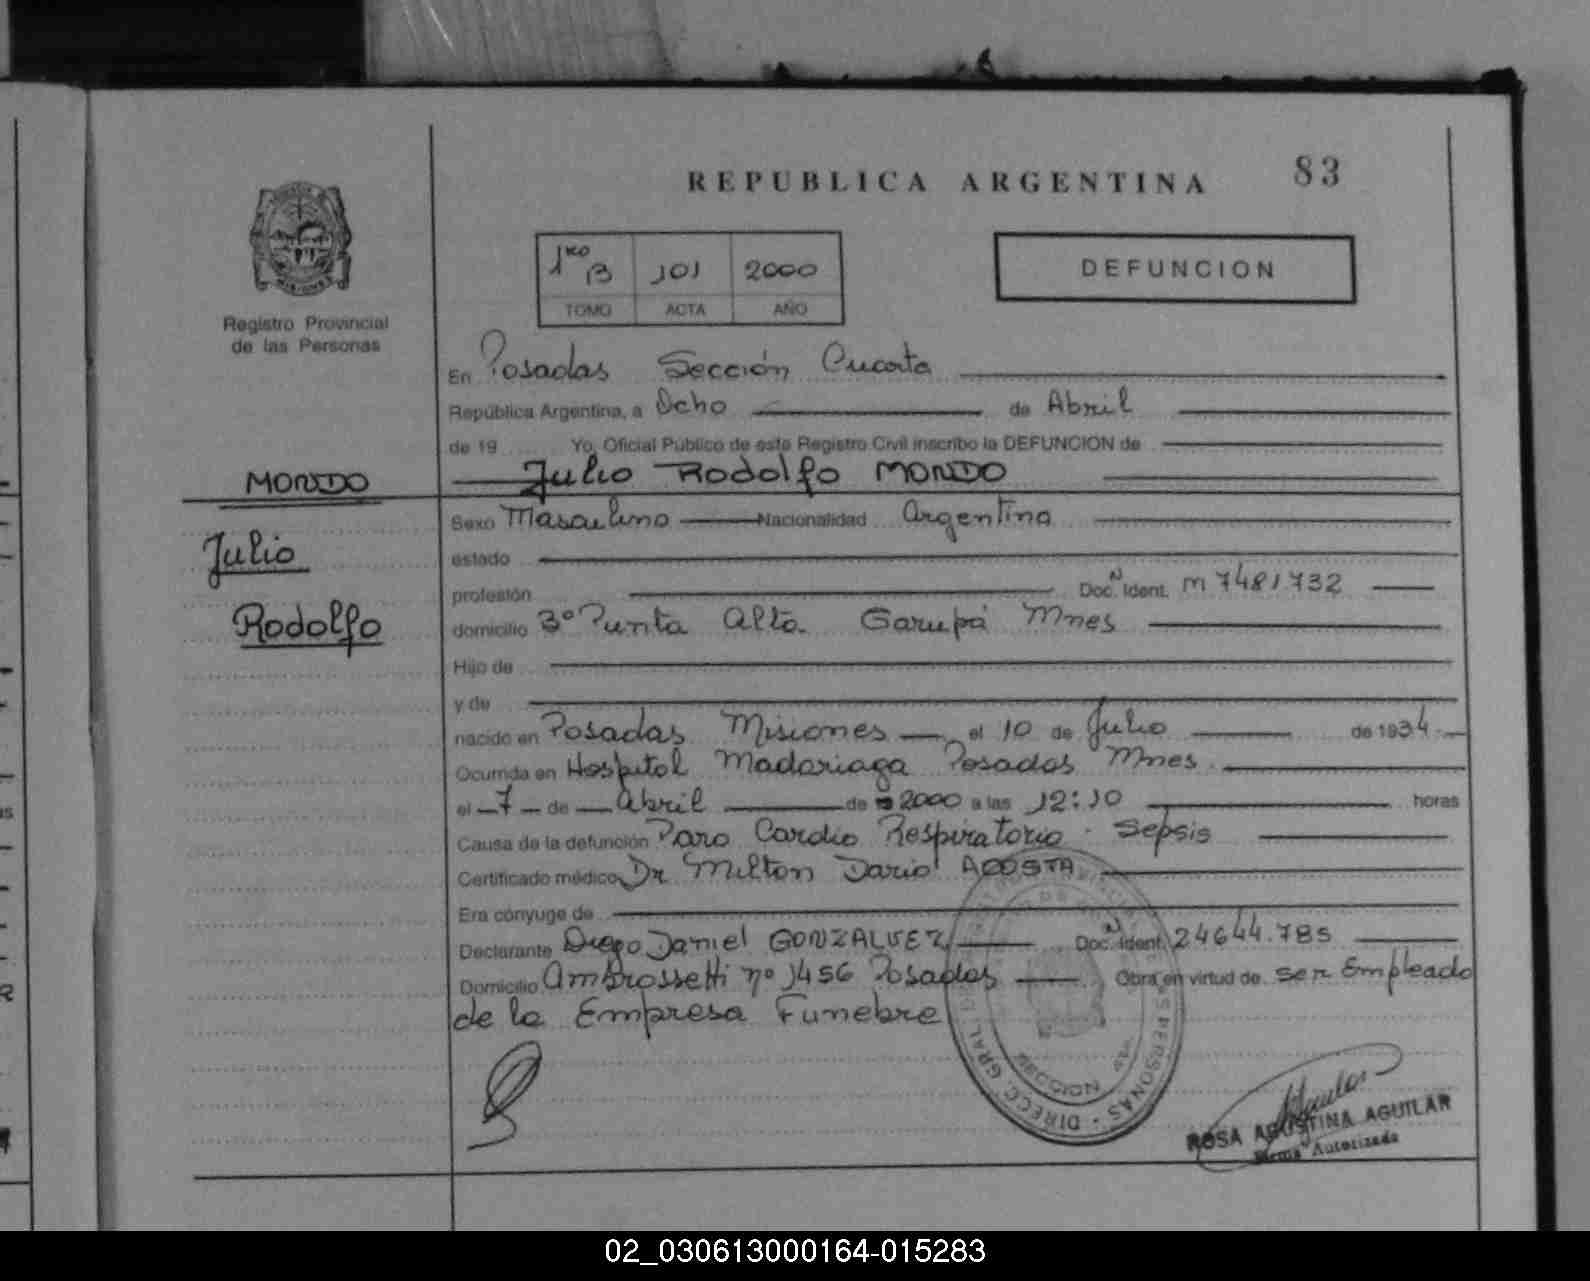 83
REPUBLICA ARGENTINA
1ro B 101 2000
TOMO ACTA AÑO
DEFUNCION
Registro Provincial
de las Personas
En Posadas Sección Cuarta
República Argentina, a Ocho de Abril
de 19 Yo, Oficial Público de este Registro Civil inscribo la DEFUNCION de
Julio Rodolfo MONDO
MONDO
Julio
Rodolfo
Sexo Masculino Nacionalidad Argentina
estado
profesión Doc. N Ident. M 7481732
domicilio Bº Punta Alta Garupá Mnes
Hijo de
y de
nacido en Posadas Misiones el 10 de Julio de 1934
Ocurrida en Hospital Madariaga Posadas Mnes
el 7 de Abril de 2000 a las 12:10 horas
Causa de la defunción Paro Cardio Respiratorio - Sepsis
Certificado médico Dr Milton Dario ACOSTA
Era cónyuge de
Declarante Diego Daniel GONZALVEZ Doc. N Ident. 24644.785
Domicilio Ambrossetti nº 1456 Posadas Obra en virtud de ser Empleado
de la Empresa Funebre
PERSONAS - DIRECC. GRAL
SECCION
ROSA AGUSTINA AGUILAR
Firma Autorizada
02_030613000164-015283